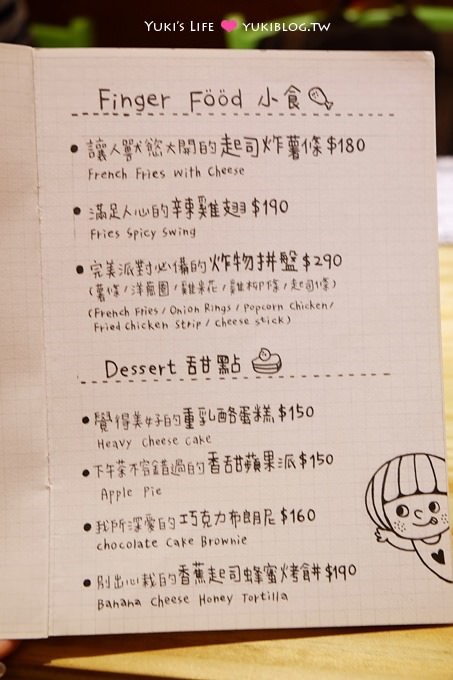 Yuki's Life ❤ yukiblog.tw
Finger Fööd 小食
讓人獸慾大開的起司炸薯條 $180
French Fries with Cheese
滿足人心的辛辣雞翅 $190
Fries Spicy Swing
完美派對必備的炸物拼盤 $290
(薯條/洋蔥圈/雞米花/雞柳條/起司條)
(French Fries / Onion Rings / Popcorn Chicken/
Fried Chicken Strip / Cheese stick)
Dessert 甜點
覺得美好的重乳酪蛋糕 $150
Heavy Cheese Cake
下午茶不容錯過的香甜蘋果派 $150
Apple Pie
我所深愛的巧克力布朗尼 $160
chocolate Cake Brownie
別出心栽的香蕉起司蜂蜜烤餅 $190
Banana Cheese Honey Tortilla